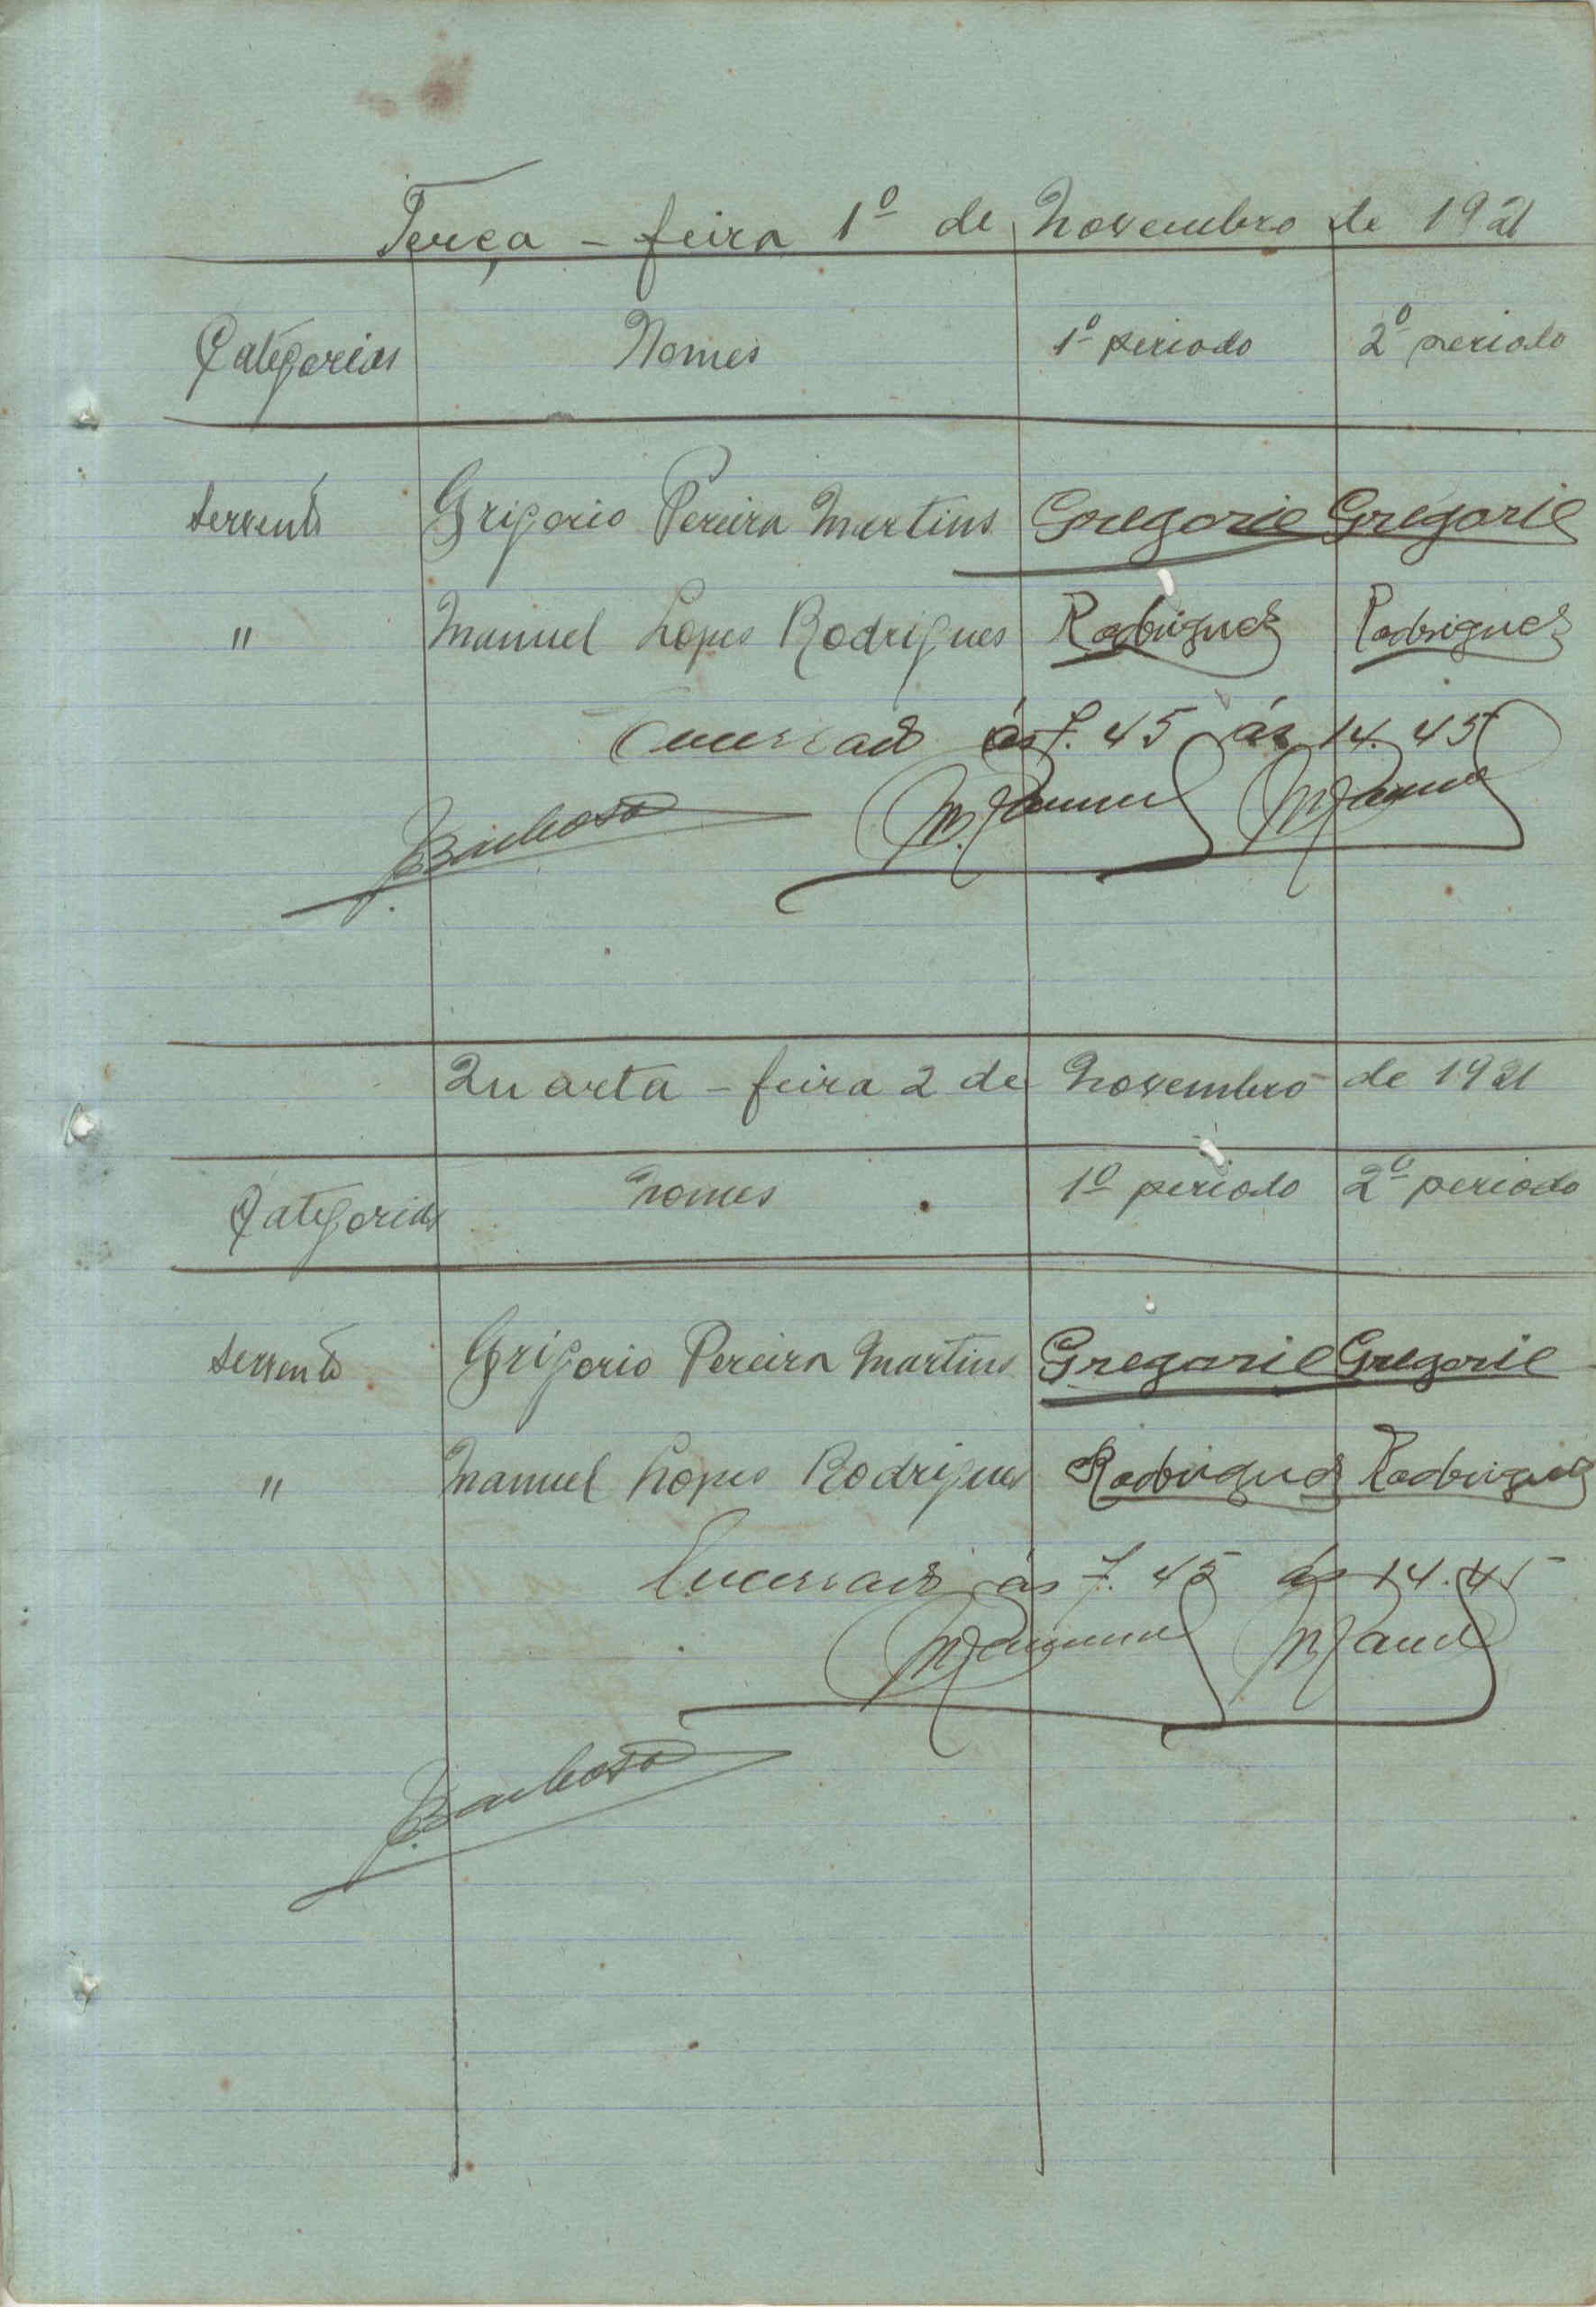 Terça - feira 1º de Novembro de 1921
Categorias Nomes 1º periodo 2º periodo
Servente Grigorio Pereira Martins Gregorio Gregorio
" Manuel Lopes Rodrigues Rodrigues Rodrigues
Encerrado ás 7.45 ás 14.45
Barbosa
Quarta - feira 2 de Novembro de 1921
Categorias Nomes 1º periodo 2º periodo
Servente Grigorio Pereira Martins Gregorio Gregorio
" Manuel Lopes Rodrigues Rodrigues Rodrigues
Encerrado ás 7.45 ás 14.45
Barbosa